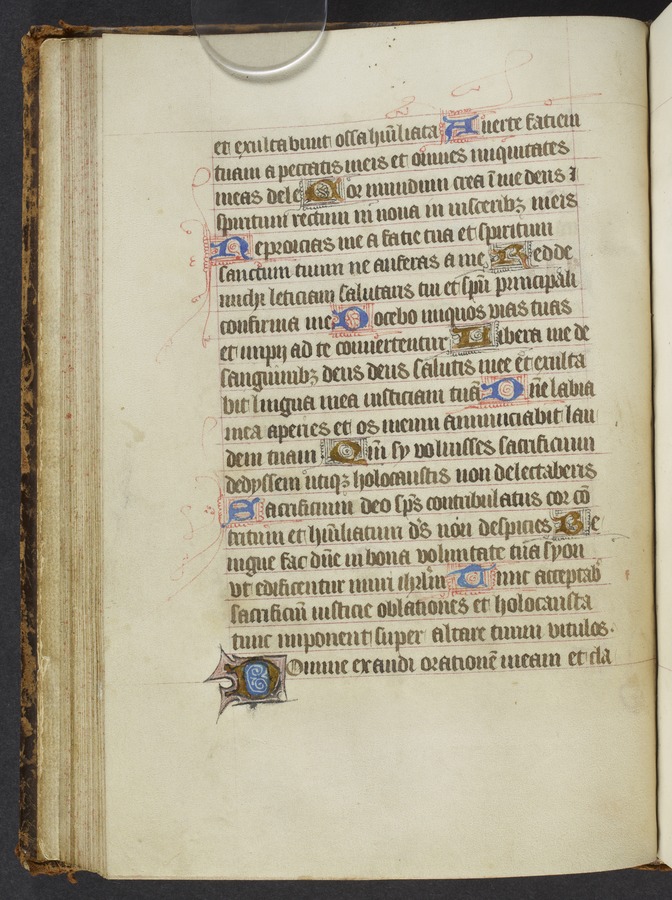 et exultabunt ossa hūiliata Auerte faciem
tuam a peccatis meis et omnes iniquitates
meas dele Cor mundum crea ī me deus ⁊
spiritum rectum in noua in viscerib⁊ meis
Ne proicias me a facie tua et spiritum
sanctum tuum ne auferas a me Redde
michi leticiam salutaris tui et sp̄u principali
confirma me Docebo iniquos vias tuas
et impij ad te conuertentur Libera me de
sanguinib⁊ deus deus salutis mee et exulta
bit lingua mea iusticiam tuā Dn̄e labia
mea aperies et os meum annunciabit lau
dem tuam Qm̄ sy voluisses sacrificium
dedyssem utiq⁊ holocaustis non delectaberis
Sacrificium deo sp̄s contribulatus cor cō
tritum et hūiliatum d̄s non despicies Be
nigne fac dn̄e in bona voluntate tua syon
vt edificentur muri ihrl̄m Tunc acceptab
sacrificiū iusticie oblationes et holocausta
tunc imponent super altare tuum vitulos.
Domine exaudi orationē meam et cla